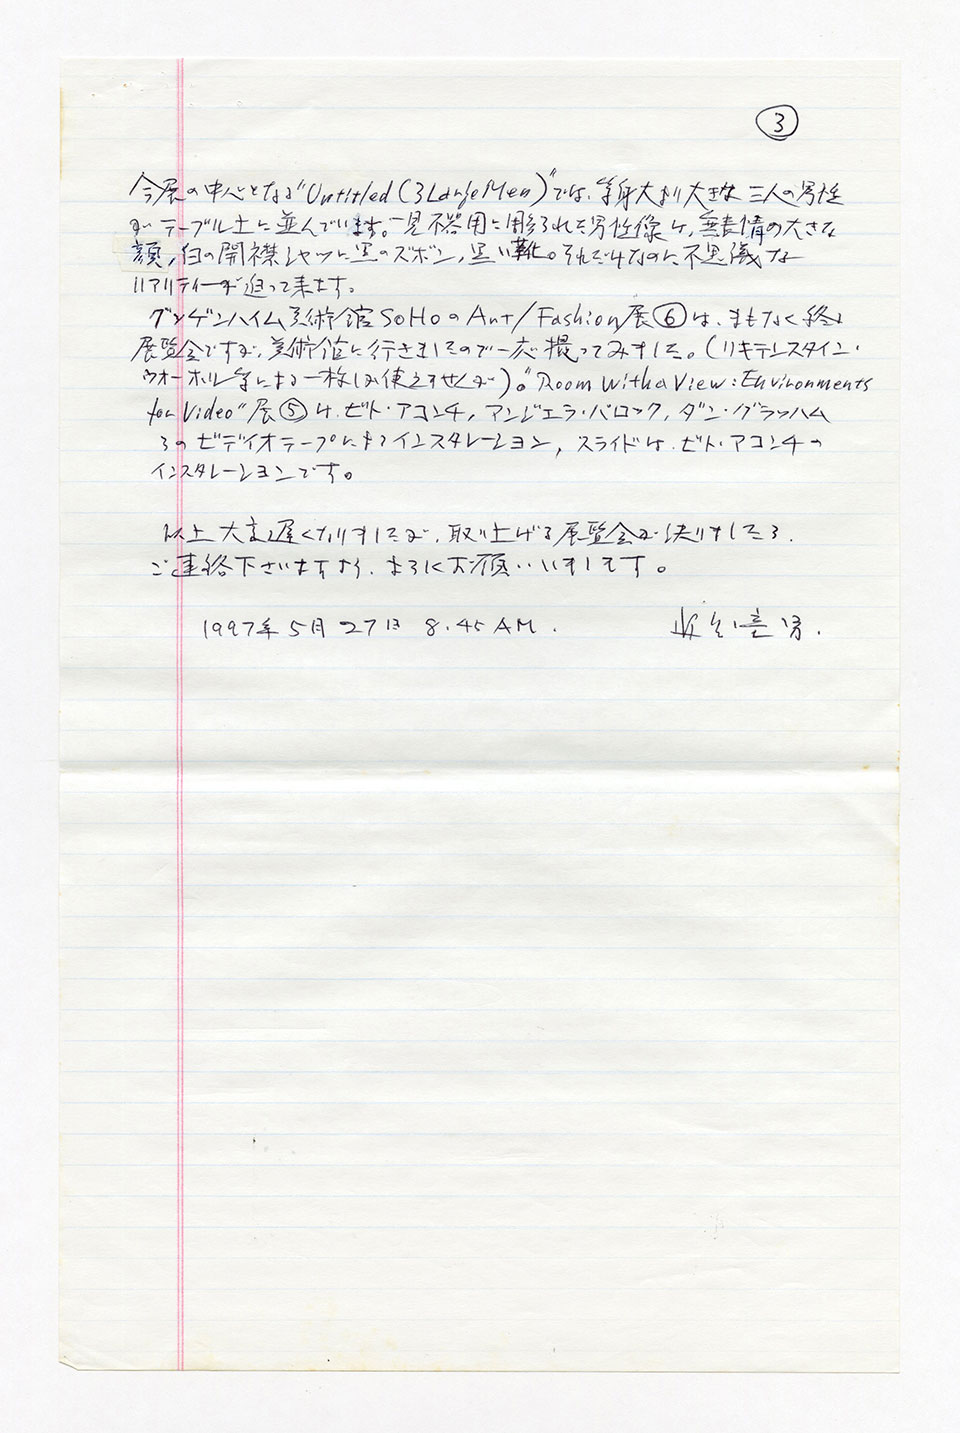 3
今展の中心となる"Untitled (3 Large Men)"では、等身大より大きな三人の男性
がテーブル上に並んでいます。一見不器用に彫られた男性像は、無表情の大きな
顔、白の開襟シャツに黒のズボン、黒い靴。それだけなのに不思議な
リアリティーが迫って来ます。
グッゲンハイム美術館SoHoのArt/Fashion展⑥は、まもなく終る
展覧会ですが、美術館に行きましたので一応撮ってみました。(リキテンスタイン・
ウオーホル等による一枚しか使えませんが)。"Room With a View: Environments
for Video"展⑤は、ビト・アコンチ、アンジェラ・バロック、ダン・グラハム
らのビデイオテープによるインスタレーション、スライドは、ビト・アコンチの
インスタレーションです。
以上大変遅くなりましたが、取り上げる展覧会が決りましたら、
ご連絡下さいますよう、よろしくお願いいたします。
1997年5月27日 8.45 AM.